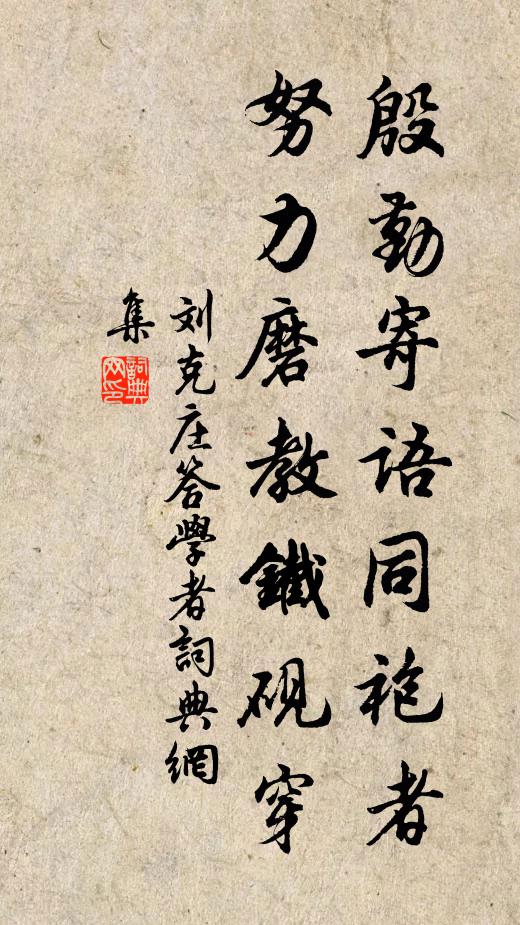 殷勤寄語同袍者
努力磨教鐵硯穿
刘克庄答學者詞典網
集
詞典
网印